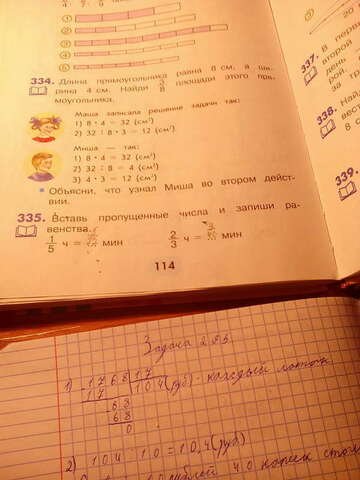 334. Длина прямоугольника равна 8 см, а ши-
рина 4 см. Найди 3/8 площади этого пря-
моугольника.
Маша записала решение задачи так:
1) 8 · 4 = 32 (см²)
2) 32 : 8 · 3 = 12 (см²)
Миша — так:
1) 8 · 4 = 32 (см²)
2) 32 : 8 = 4 (см²)
3) 4 · 3 = 12 (см²)
• Объясни, что узнал Миша во втором дейст-
вии.
335. Вставь пропущенные числа и запиши ра-
венства.
1/5 ч = мин 2/3 ч = мин
114
337.
В перв
второй
день
за
338. Най
339.
Задача 285
1) 1768 | 17
17 104 (руб) - каждый
68
68
0
2) 104 : 10 = 10,4 (руб)
40 копеек